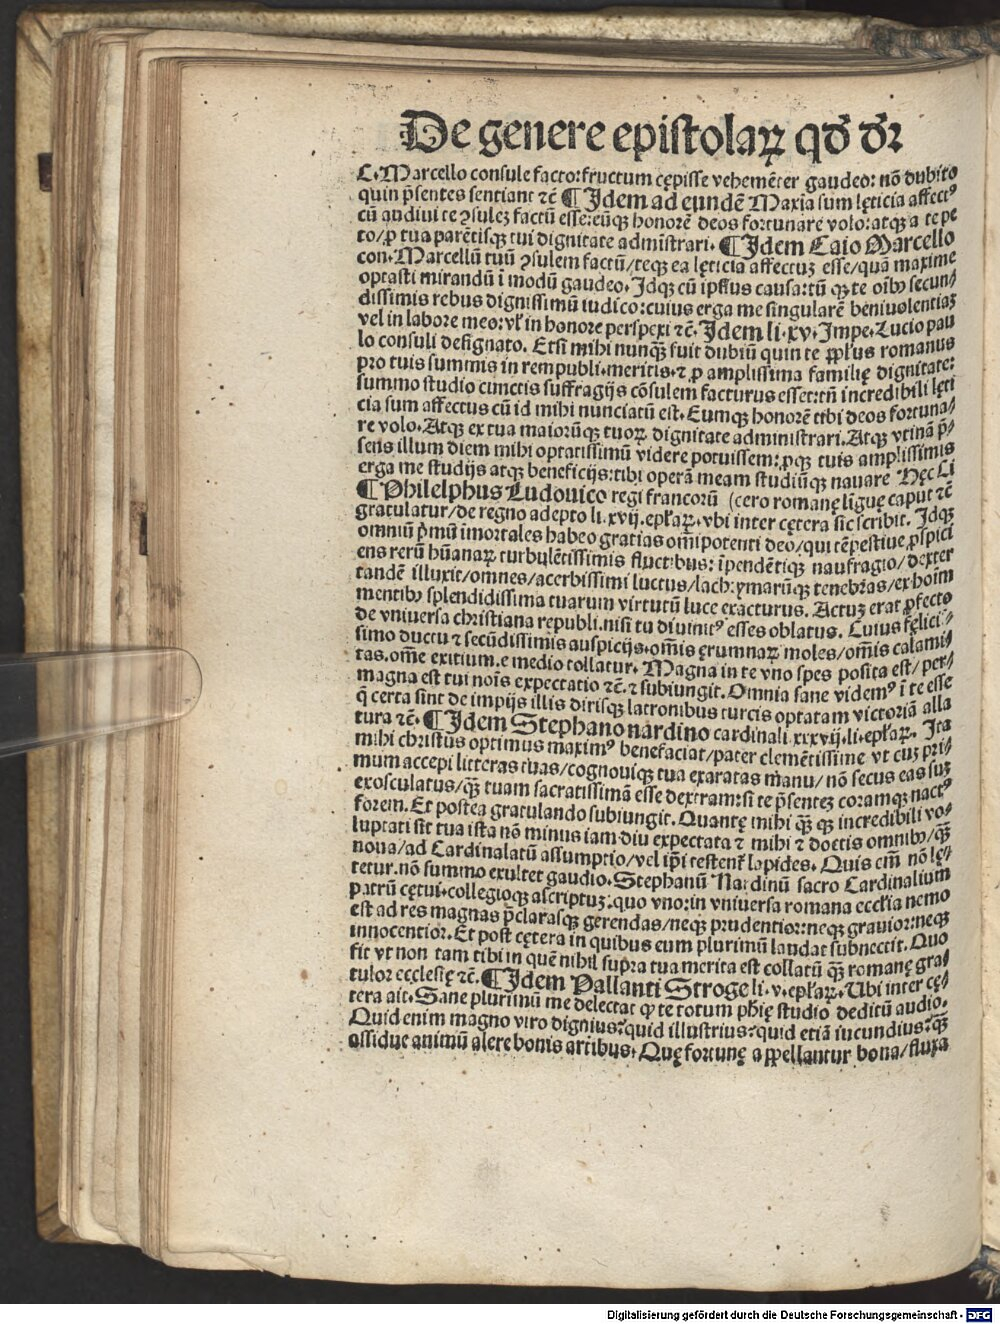 De genere epistolaꝝ qđ đꝛ
C. Marcello consule facto: fructum cępisse vehemēter gaudeo: nō dubito
quin p̄sentes sentiant ⁊c̄ ¶ Idem ad eundē Maxīa sum lęticia affectꝰ
cū audiui te ꝯsuleꝫ factū esse: eūqꝫ honorē deos fortunare volo: atqꝫ a te pe
to/ꝓ tua parētisqꝫ tui dignitate admīstrari. ¶ Idem Caio Marcello
con. Marcellū tuū ꝯsulem factū/teqꝫ ea lęticia affectuꝫ esse/quā maxime
optasti mirandū ī modū gaudeo. Idqꝫ cū ip̄sius causa: tū qꝫ te oībꝰ secun/
dissimis rebus dignissimū iudico: cuius erga me singularē beniuolentiaꝫ
vel in labore meo: vł in honore perspexi ⁊c̄. Idem li. xv. Impe. Lucio pau
lo consuli designato. Etsi mihi nunqꝫ̄ fuit dubiū quin te ꝓpl̄us romanus
pro tuis summis in rempubli. meritis. ⁊ ꝓ amplissima familię dignitate:
summo studio cunctis suffragijs cōsulem facturus esset: tn̄ incredibili lęti
cia sum affectus cū id mihi nunciatū est. Eumqꝫ honorē tibi deos fortuna/
re volo. Atqꝫ ex tua maiorūqꝫ tuoꝝ dignitate administrari. Atqꝫ vtinā p̄/
sens illum diem mihi optatissimū videre potuissem: ꝓqꝫ tuis amplissimis
erga me studijs atqꝫ beneficijs: tibi operā meam studiūqꝫ nauare Hęc Ci
¶ Philelphus Ludouico regi francorū (cero romanę līguę caput ⁊c̄
gratulatur/de regno adepto li. xvij. epl̄aꝝ. vbi inter cętera sic scribit. Idqꝫ
omniū p̄mū īmortales habeo gratias om̄ipotenti deo/qui tēpestiue ꝓspici
ens rerū hūanaꝝ turbulētissimis fluctibus: īpendētiqꝫ naufragio/dexter
tandē illuxit/omnes/acerbissimi luctus/lachrymarūqꝫ tenebras/ex hoīm
mentibꝰ splendidissima tuarum virtutū luce exacturus. Actuꝫ erat ꝓfecto
de vniuersa christiana republi. nisi tu diuinitꝰ esses oblatus. Cuius fęlici/
simo ductu ⁊ secūdissimis auspicijs. om̄is ęrumnaꝝ moles/om̄is calami/
tas. om̄e exitium. e medio tollatur. Magna in te vno spes posita est/per/
magna est tui nois expectatio ⁊c̄. ⁊ subiungit. Omnia sane videmꝰ ī te esse
q̄ certa sint de impijs illis dirisqꝫ latronibus turcis optatam victoriā alla
tura ⁊c̄. ¶ Idem Stephano nardino cardinali xxxvij. li. epl̄aꝝ. Ita
mihi christus optimus maximꝰ benefaciat/pater clemētissime vt cuꝫ pri/
mum accepi litteras tuas/cognouisqꝫ tua exaratas manu/nō secus eas suꝫ
exosculatus/qꝫ̄ tuam sacratissimā esse dextram: si te p̄senteꝫ coramqꝫ nactꝰ
forem. Et postea gratulando subiungit. Quantę mihi qꝫ̄ qꝫ incredibili vo/
luptati sit tua ista nō minus iam diu expectata ⁊ mihi ⁊ doctis omnibꝰ/qꝫ̄
noua/ad Cardinalatū assumptio/vel ip̄i testent̄ lapides. Quis em̄ nō lę/
tetur. nō summo exultet gaudio. Stephanū Nardinū sacro Cardinalium
patrū cętui. collegioqꝫ ascriptuꝫ: quo vno: in vniuersa romana ecclīa nemo
est ad res magnas p̄clarasqꝫ gerendas/neqꝫ prudentior: neqꝫ grauior: neqꝫ
innocentior. Et post cętera in quibus eum plurimū laudat subnectit. Quo
fit vt non tam tibi in quē nihil supra tua merita est collatū qꝫ̄ romanę gra/
tulor ecclesię ⁊c̄. ¶ Idem Pallanti Stroge li. v. epl̄aꝝ. Ubi inter cę/
tera ait. Sane plurimū me delectat ꝙ te totum pħię studio deditū audio.
Quid enim magno viro dignius? quid illustrius? quid etiā iucundius? qꝫ̄
assidue animū alere bonis artibus. Quę fortunę appellantur bona/fluxa
Digitalisierung gefördert durch die Deutsche Forschungsgemeinschaft - DFG